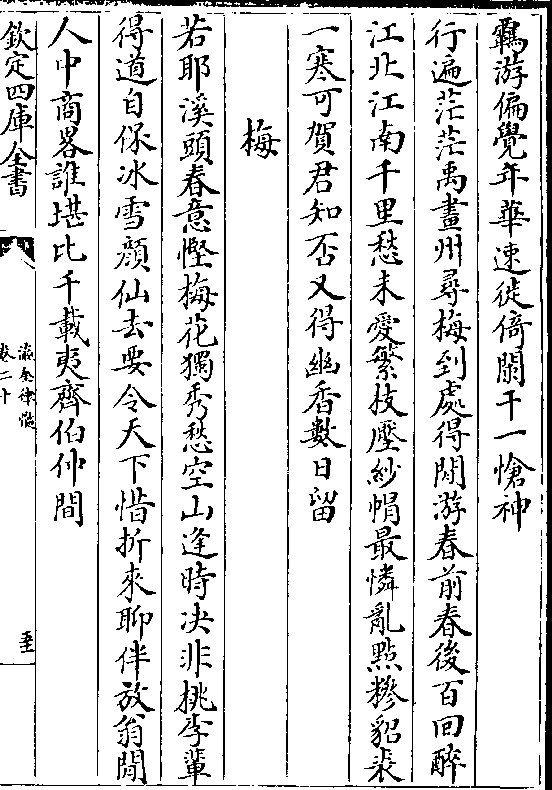 羈游偏覺年華速徙倚闌干一愴神
行遍茫茫禹畫州尋梅到處得閒游春前春後百回醉
江北江南千里愁未愛繁枝壓紗㡌最憐亂點糝貂裘
一寒可賀君知否又得幽香數日留
梅
若耶溪頭春意慳梅花獨秀愁空山逢時决非桃李輩
得道自保冰雪顔仙去要令天下惜折來聊伴放翁閒
人中商畧誰堪比千載夷齊伯仲間
欽定四庫全書
瀛奎律髓
卷二十